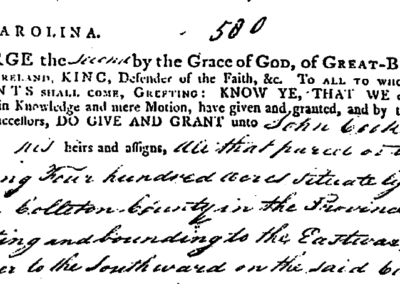 AROLINA. 580
RGE the Second by the Grace of GOD, of GREAT-B
RELAND, KING, Defender of the Faith, &c. To ALL TO WHO
NTS SHALL COME, GREETING: KNOW YE, THAT WE
in Knowledge and mere Motion, have given and granted, and by t
uccessors, DO GIVE AND GRANT unto John
his heirs and assigns, All that parcel or
ng Four hundred acres situate
Colleton County in the Provin
ting and bounding to the Eastwar
er to the Southward on the said